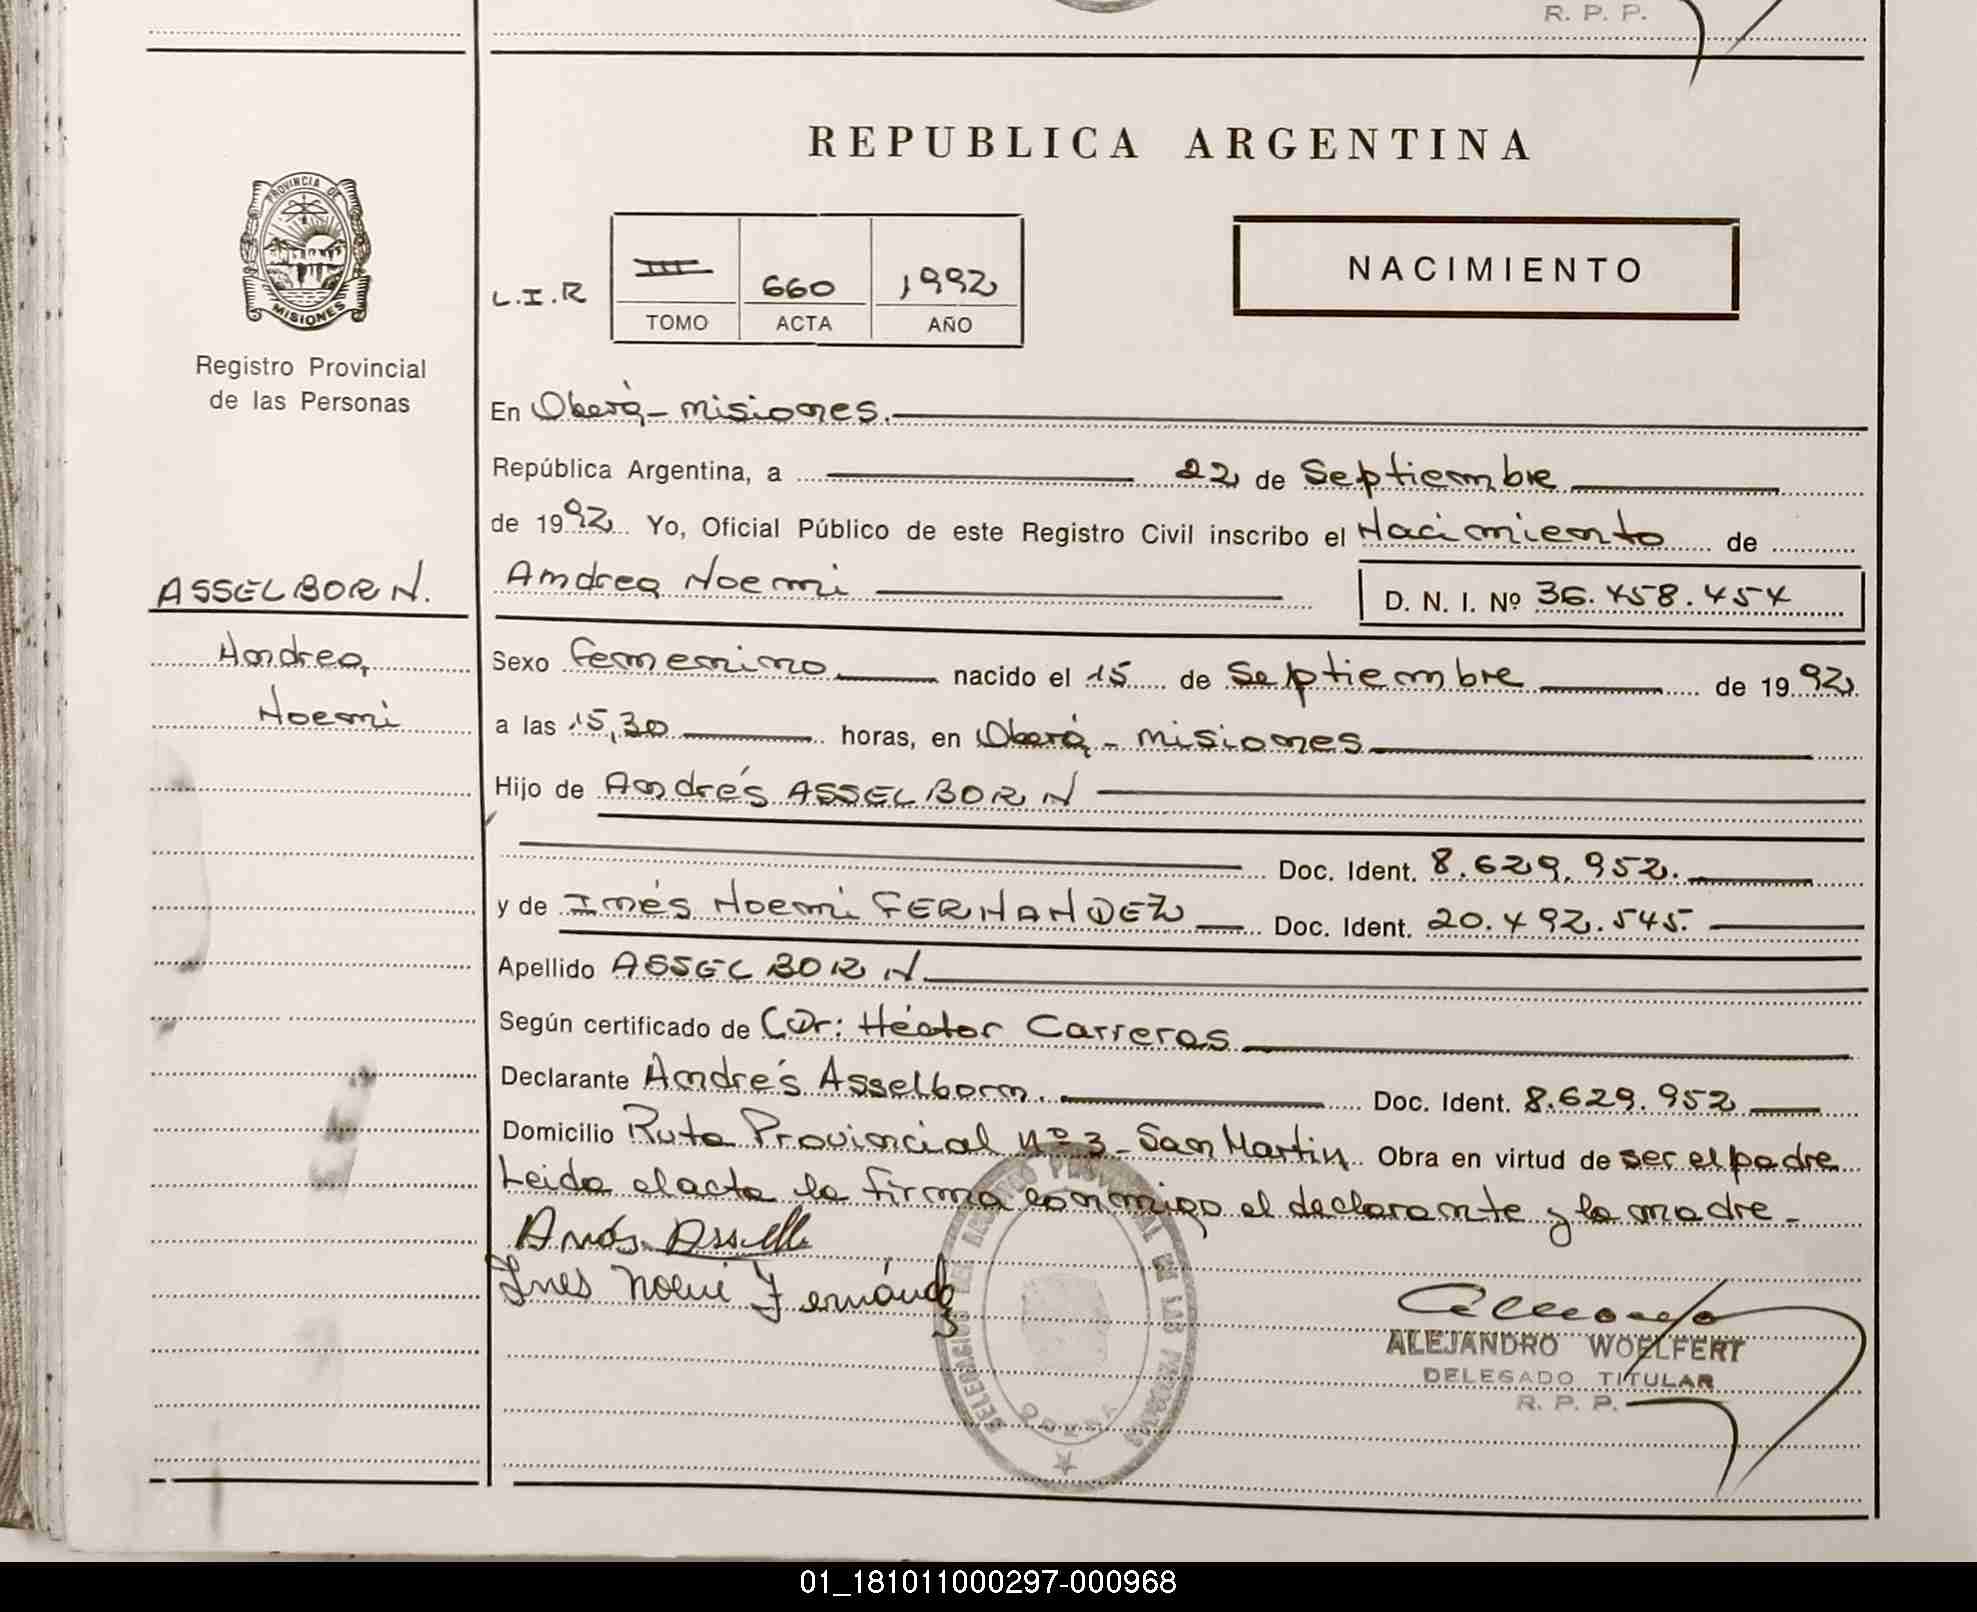 R. P. P.
REPUBLICA ARGENTINA
PROVINCIA DE
MISIONES
Registro Provincial
de las Personas
L.I.R
III 660 1992
TOMO ACTA AÑO
NACIMIENTO
En Oberá - misiones.
República Argentina, a 22 de Septiembre
de 1992 Yo, Oficial Público de este Registro Civil inscribo el Nacimiento de
ASSELBORN.
Andrea Noemi D. N. I. Nº 36.458.454
Andrea
Noemi
Sexo femenino nacido el 15 de Septiembre de 1992
a las 15,30 horas, en Oberá - misiones
Hijo de Andrés ASSELBORN
Doc. Ident. 8.629.952.
y de Inés Noemi FERNANDEZ Doc. Ident. 20.492.545.
Apellido ASSELBORN
Según certificado de Dr: Héctor Carreras
Declarante Andrés Asselborn. Doc. Ident. 8.629.952
Domicilio Ruta Provincial Nº 3 - San Martin Obra en virtud de ser el padre
Leida el acta la firma conmigo el declarante y la madre -
Ines Noemi Fernández
ALEJANDRO WOELFERT
DELEGADO TITULAR
R. P. P.
01_181011000297-000968